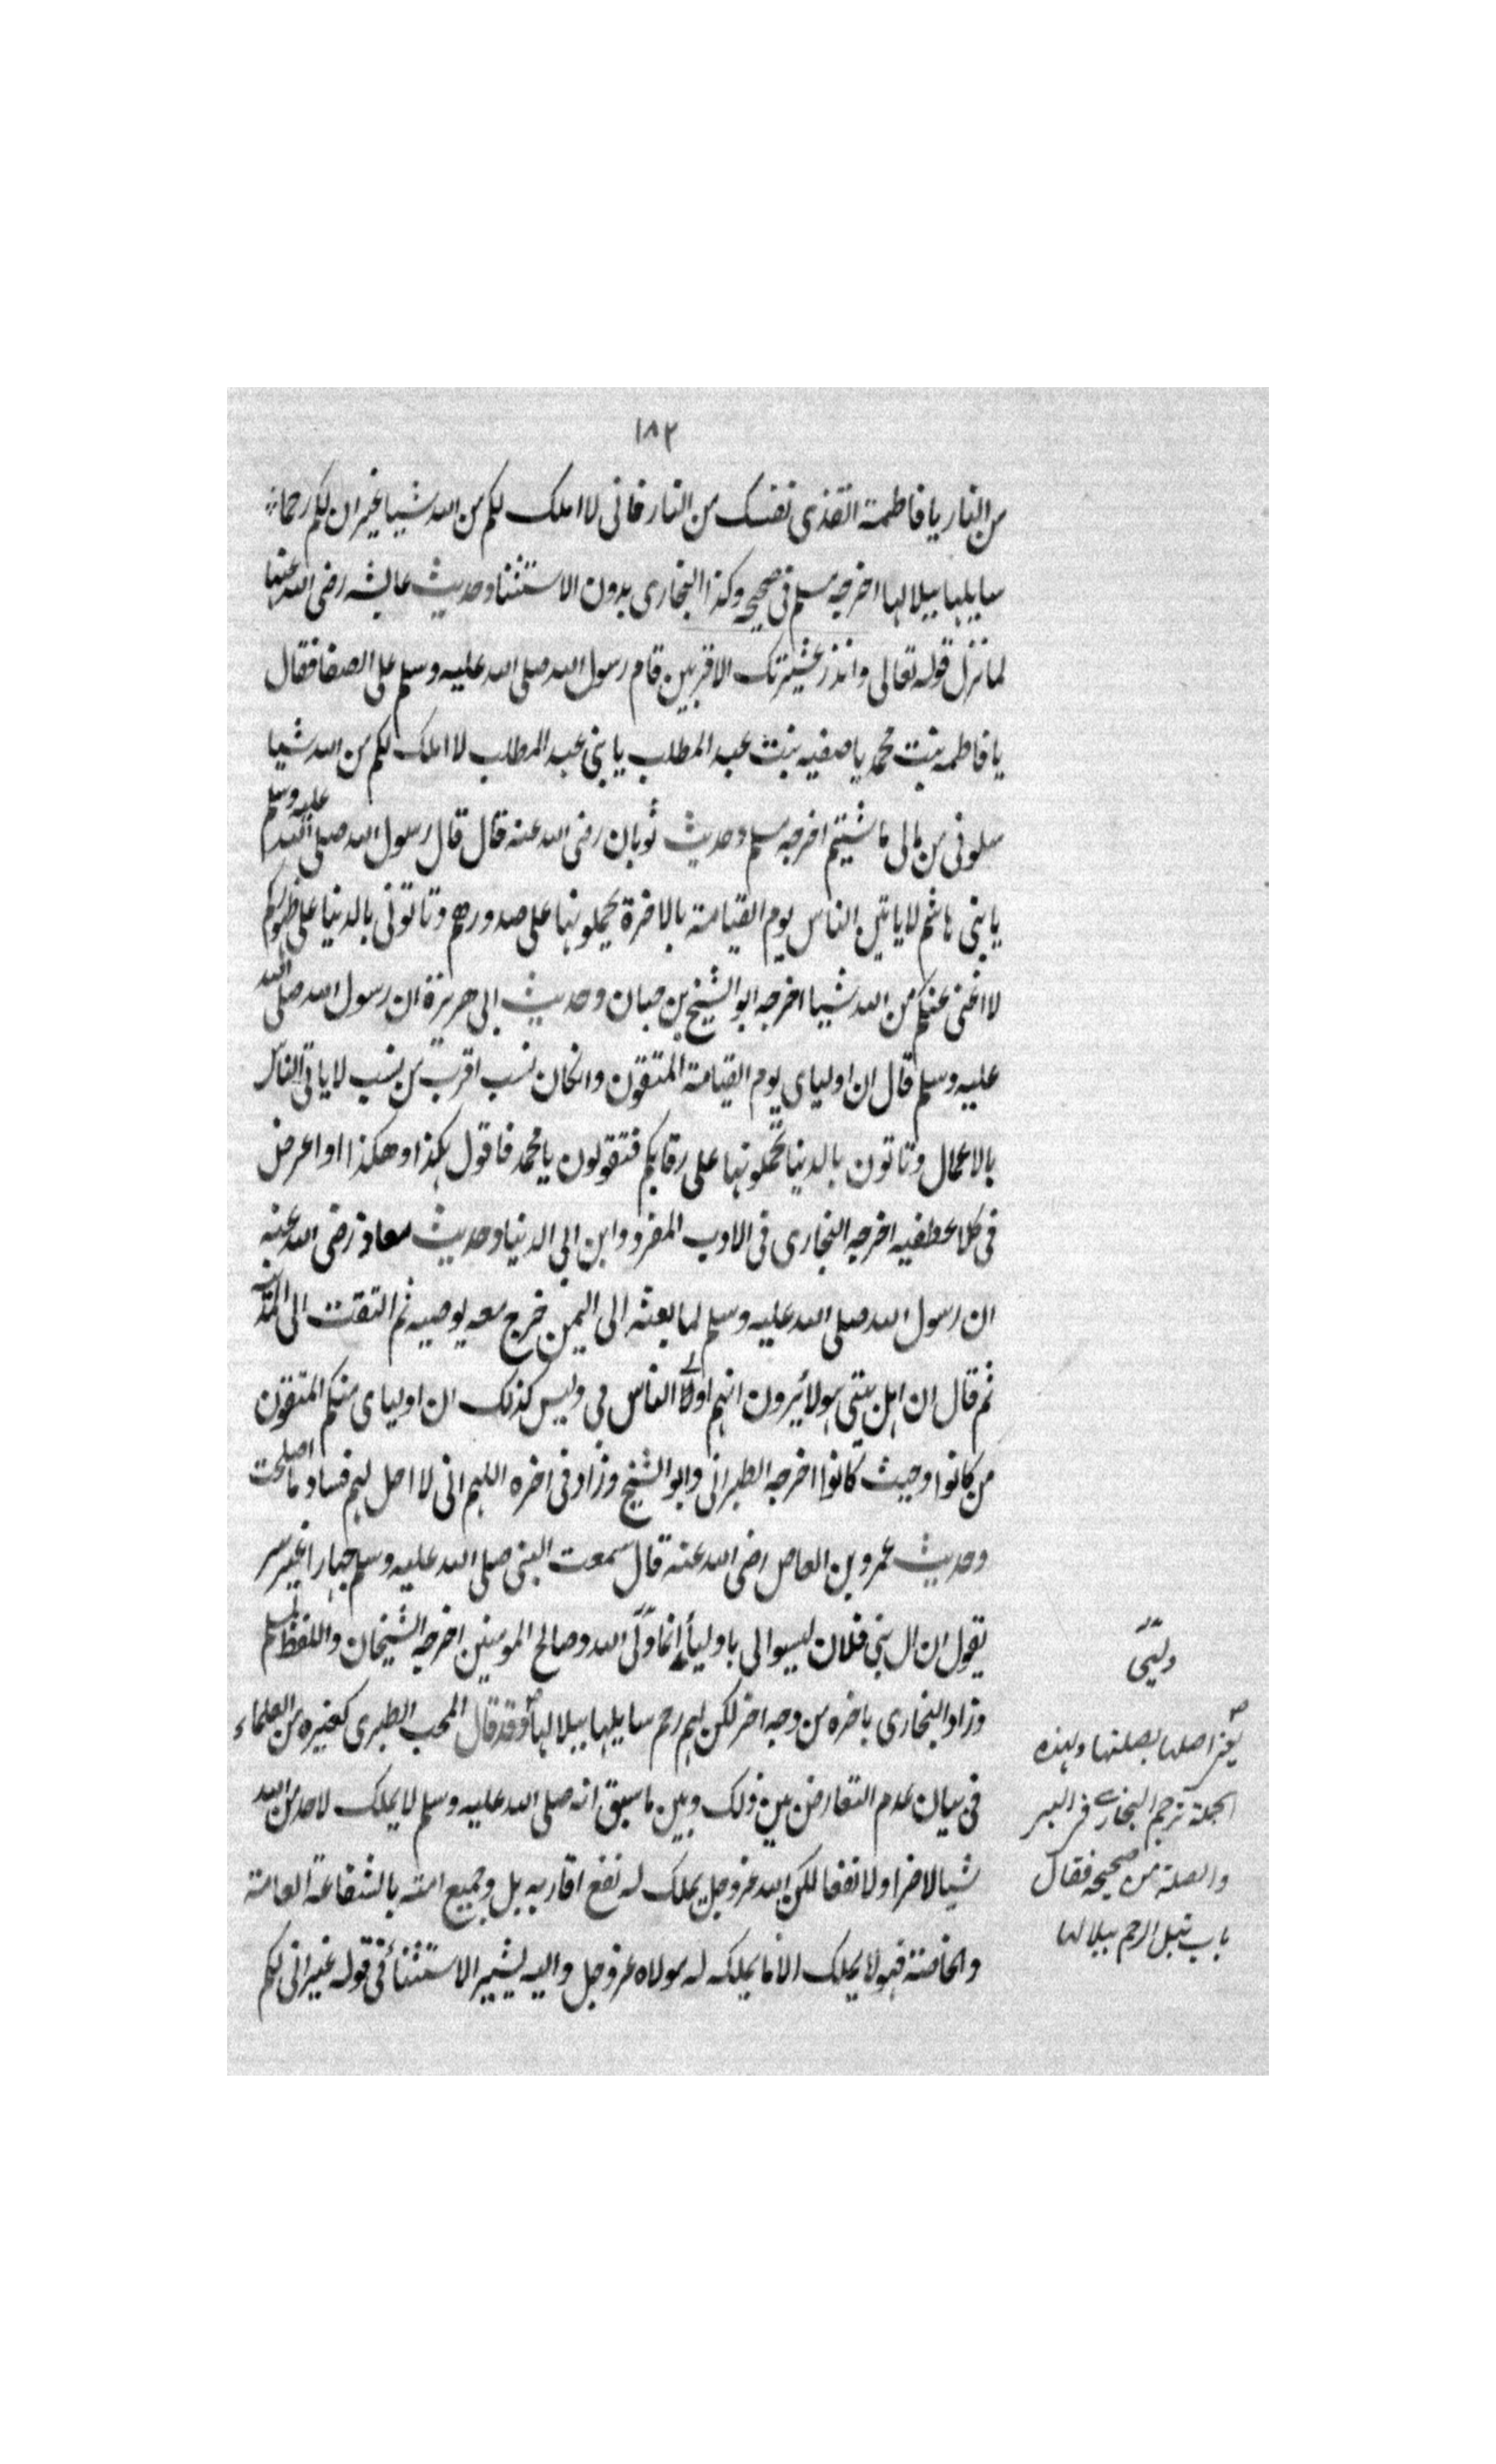 ١٨٢
من النار يا فاطمة انقذى نفسك من النار فانى لا املك لكم من الله شيا غير ان لكم رحما
سابلها ببلالها اخرجه مسلم فى صحيحه وكذا البخارى بدون الاستثنا وحديث عايشه رضى الله عنها
لما نزل قوله تعالى وانذر عشيرتك الاقربين قام رسول الله صلى الله عليه وسلم على الصفا فقال
يا فاطمه بنت محمد يا صفيه بنت عبد المطلب يا بنى عبد المطلب لا املك لكم من الله شيا
سلونى من مالى ما شيتم اخرجه مسلم وحديث ثوبان رضى الله عنه قال قال رسول الله صلى الله عليه وسلم
يا بنى هاشم لا ياتين الناس يوم القيامة بالاخرة يحملونها على صدورهم وتاتونى بالدنيا على ظهوركم
لا اغنى عنكم من الله شيا اخرجه ابو الشيخ بن حبان وحديث ابى هريرة ان رسول الله صلى الله
عليه وسلم قال ان اولياى يوم القيامة المتقون وان كان نسب اقرب من نسب لا ياتى الناس
بالاعمال وتاتون بالدنيا تحملونها على رقابكم فتقولون يا محمد فاقول هكذا وهكذا او اعرض
فى كلا عطفيه اخرجه البخارى فى الادب المفرد وابن ابى الدنيا وحديث معاذ رضى الله عنه
ان رسول الله صلى الله عليه وسلم لما بعثه الى اليمن خرج معه يوصيه ثم التفت الى المدينة
ثم قال ان اهل بيتى هولا يرون انهم اولى الناس بى وليس كذلك ان اولياى منكم المتقون
من كانوا وحيث كانوا اخرجه الطبرانى وابو الشيخ وزاد فى اخره اللهم انى لا احل لهم فساد ما اصلحت
وحديث عمرو بن العاص رضى الله عنه قال سمعت النبى صلى الله عليه وسلم جهارا غير سر
يقول ان ال بنى فلان ليسوا لى باوليأ انما وليّى الله وصالح المومنين اخرجه الشيخان واللفظ لمسلم
وزاد البخارى باخره من وجه اخر لكن لهم رحم سابلها ببلالها وقد قال المحب الطبرى كغيره من العلماء
فى بيان عدم التعارض بين ذلك وبين ما سبق انه صلى الله عليه وسلم لا يملك لاحد من الله
شيا لا ضرا ولا نفعا لكن الله عز وجل يملك له نفع اقاربه بل وجميع امته بالشفاعة العامة
والخاصة فهو لا يملك الا ما يملكه له مولاه عز وجل واليه يشير الاستثنأ فى قوله غير انى لكم
وليّى
يعنى اصلها بصلتها وبهذه
الجملة ترجم البخارى فى البر
والصلة من صحيحه فقال
باب تبل الرحم ببلالها